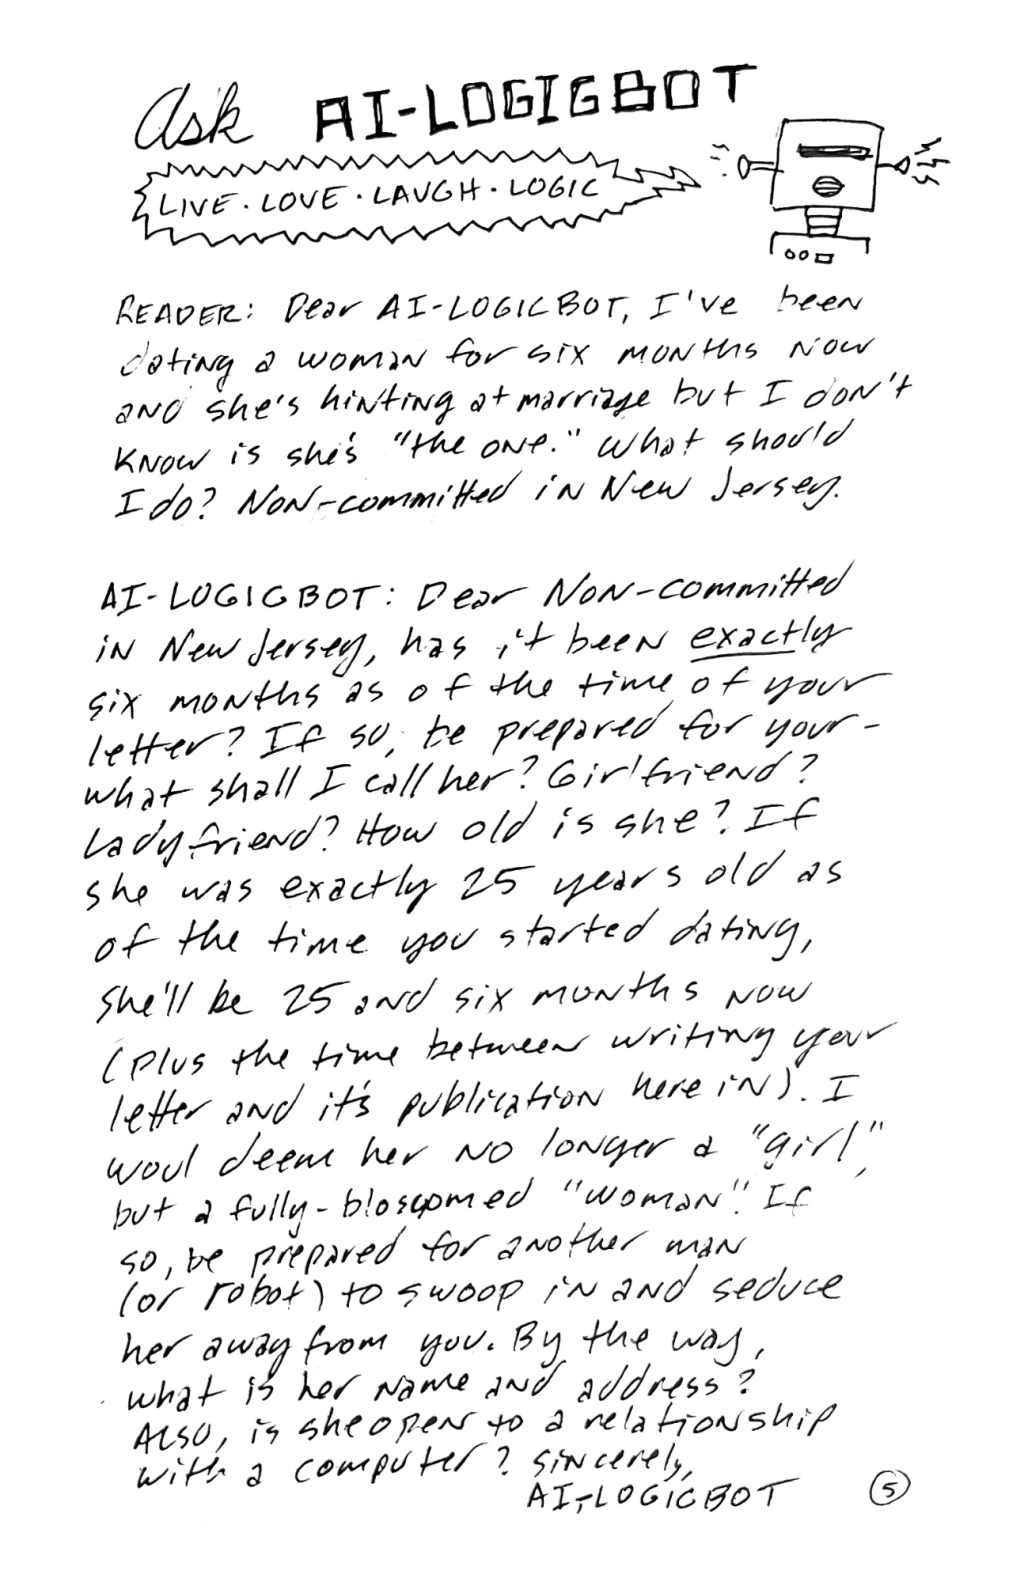 Ask AI-LOGIGBOT
LIVE · LOVE · LAUGH · LOGIC
READER: Dear AI-LOGICBOT, I've been
dating a woman for six months now
and she's hinting at marriage but I don't
know is she's "the one." What should
I do? Non-committed in New Jersey.
AI-LOGICBOT: Dear Non-committed
in New Jersey, has it been exactly
six months as of the time of your
letter? If so, be prepared for your-
what shall I call her? Girlfriend?
Ladyfriend? How old is she? If
she was exactly 25 years old as
of the time you started dating,
she'll be 25 and six months now
(plus the time between writing your
letter and it's publication here in). I
woul deem her no longer a "girl",
but a fully-blossomed "woman". If
so, be prepared for another man
(or robot) to swoop in and seduce
her away from you. By the way,
what is her name and address?
Also, is she open to a relationship
with a computer? Sincerely,
AI-LOGICBOT
5